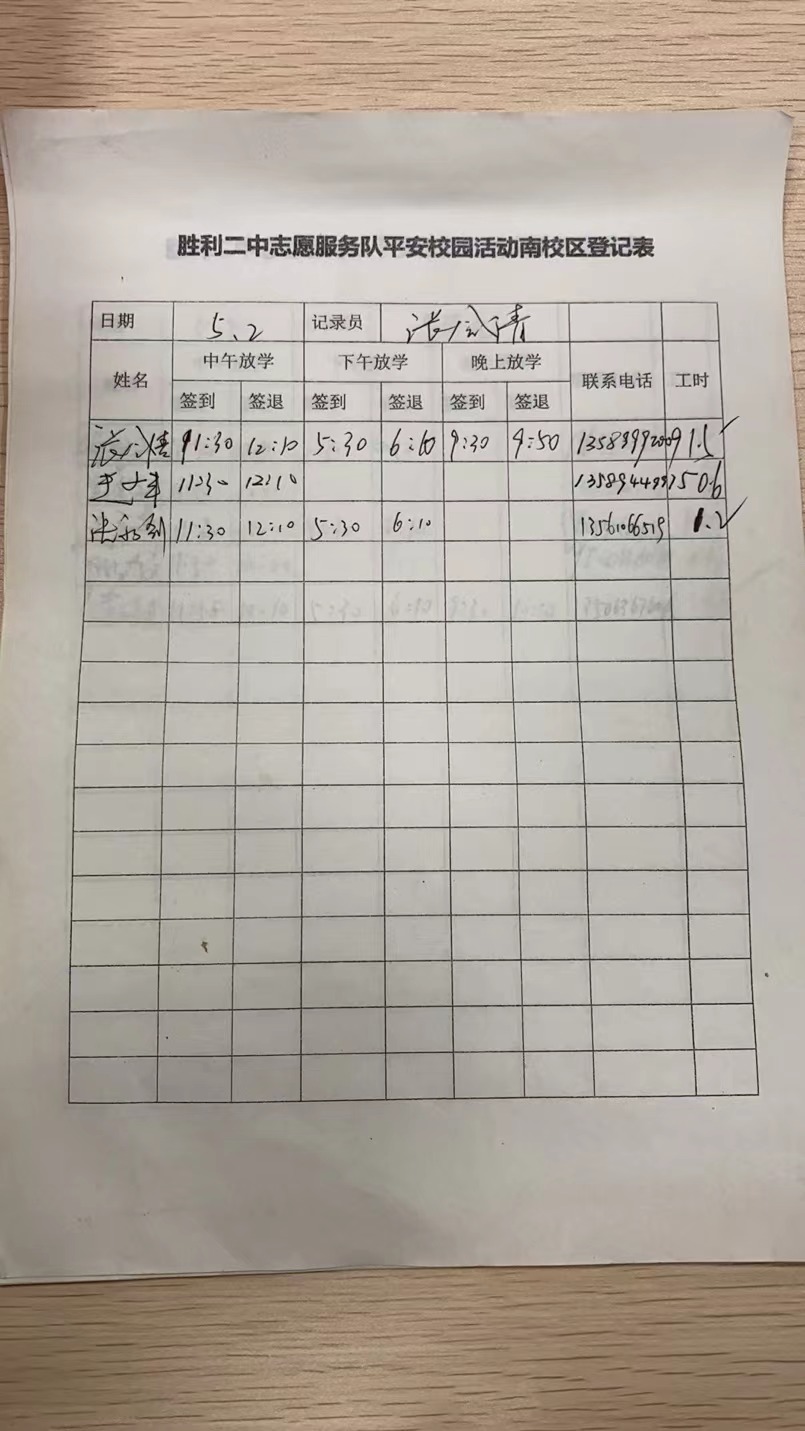 胜利二中志愿服务队平安校园活动南校区登记表
日期 5.2 记录员
姓名 中午放学 下午放学 晚上放学 联系电话 工时
签到 签退 签到 签退 签到 签退
11:30 12:10 5:30 6:10 9:30 9:50 1.5
11:30 12:10 0.6
11:30 12:10 5:30 6:10 13561066519 1.2